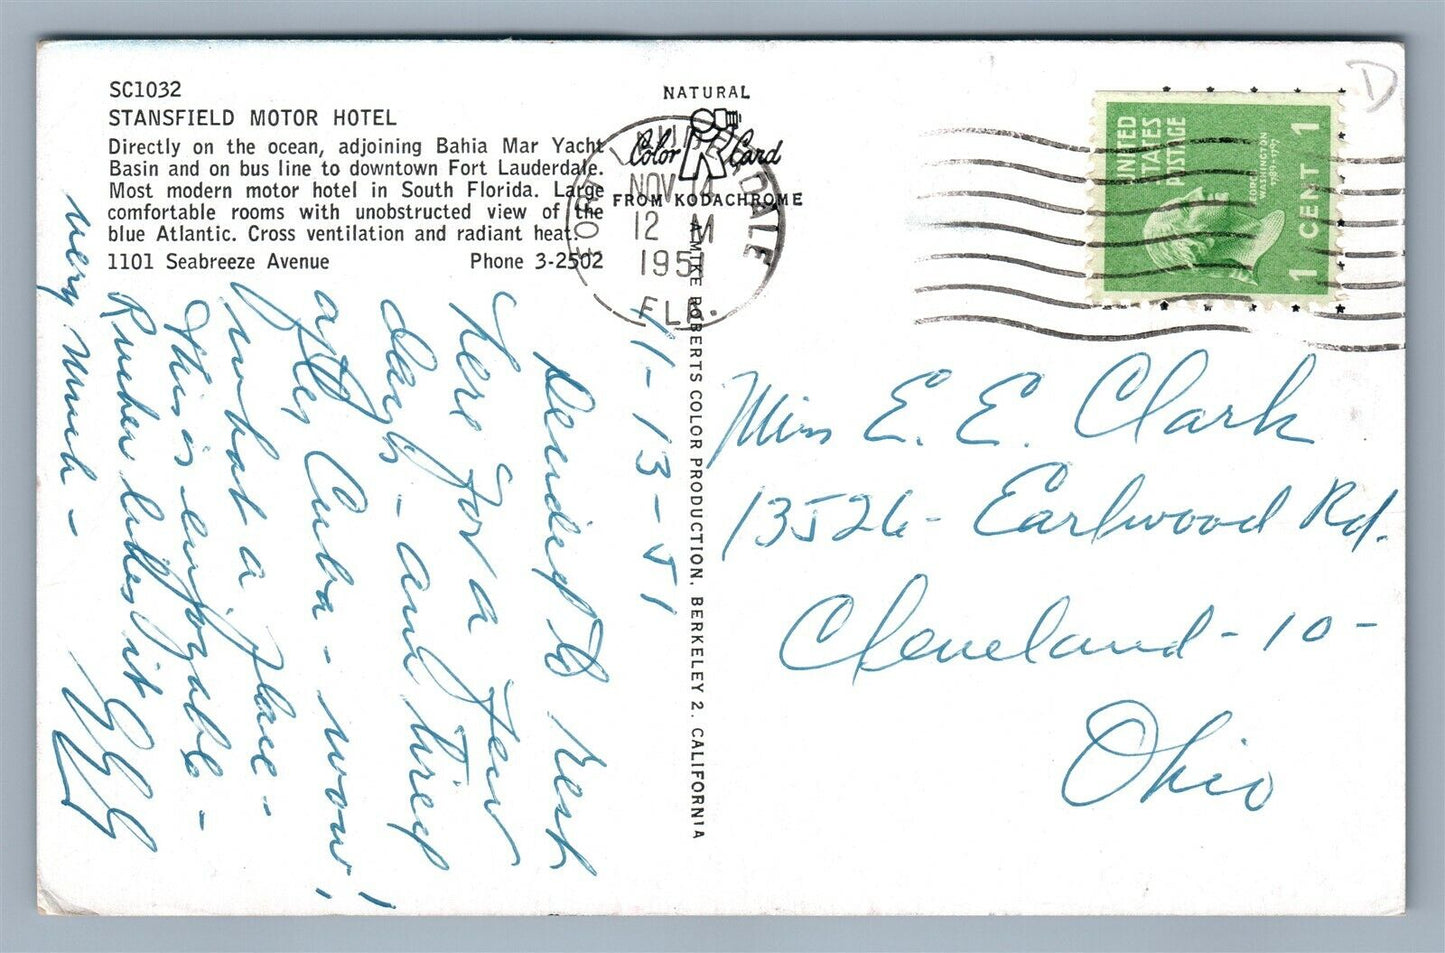 SC1032
STANSFIELD MOTOR HOTEL
Directly on the ocean, adjoining Bahia Mar Yacht
Basin and on bus line to downtown Fort Lauderdale.
Most modern motor hotel in South Florida. Large
comfortable rooms with unobstructed view of the
blue Atlantic. Cross ventilation and radiant heat.
1101 Seabreeze Avenue Phone 3-2502
NATURAL
Color Card
FROM KODACHROME
A MIKE ROBERTS COLOR PRODUCTION, BERKELEY 2, CALIFORNIA
FORT LAUDERDALE
NOV 14
12 M
1951
FLA.
UNITED
STATES
POSTAGE
GEORGE
WASHINGTON
1789-1797
1 CENT 1
D
11-13-51
Decided to rest
here for a few
days - and
after Cuba - wow!
what a place -
This is enjoyable -
very much -
Miss E. E. Clark
13526 - Earlwood Rd.
Cleveland - 10 -
Ohio